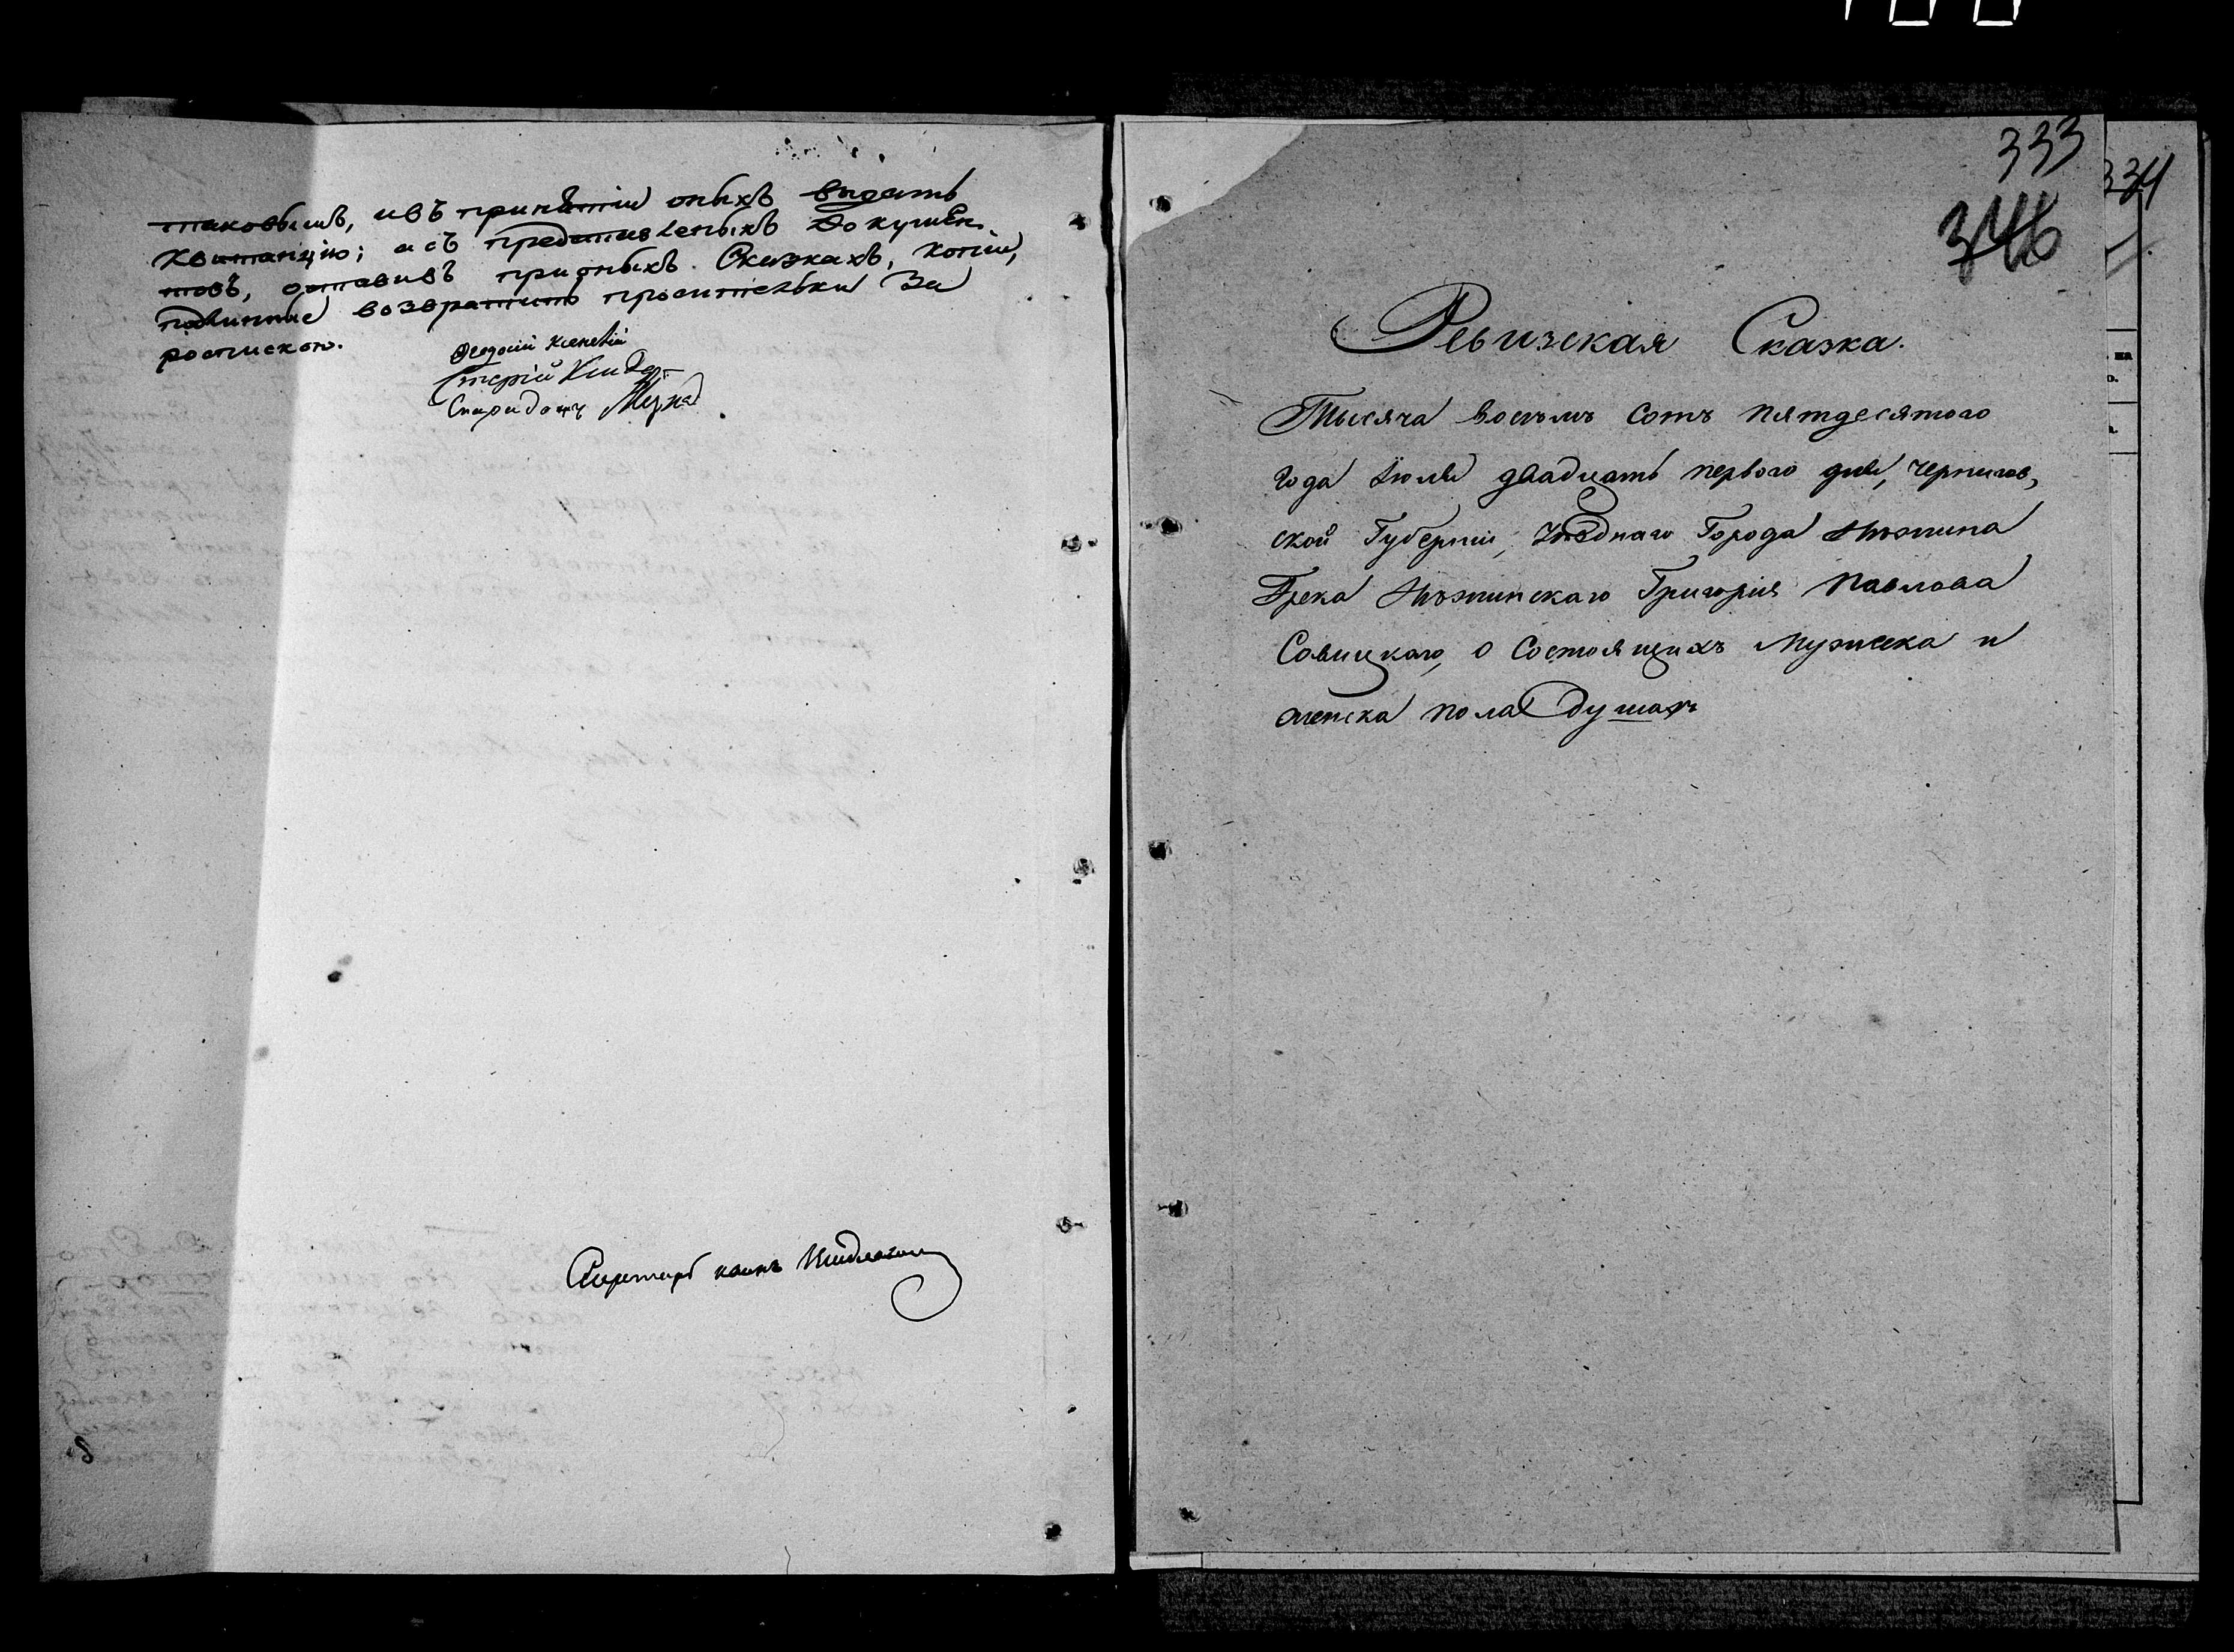 таковымъ, и въ принятіи оныхъ выдать
квитанцію; а съ представленыхъ докумен,
товъ, оставивъ при оныхъ Сказкахъ, копіи,
подлинные возвратить просительки за
роспискою.
Стерій
Спиридонъ
Секретарь
333
346
334
Ревизская Сказка.
Тысяча восемь сотъ пятдесятого
года Іюля двадцать первого дня, Чернигов,
ской Губерніи, Уѣзднаго Города Нѣжина
Грека Нѣжинскаго Григорія Павлова
Савицкаго, о Состоящихъ Мужеска и
женска пола Душахъ